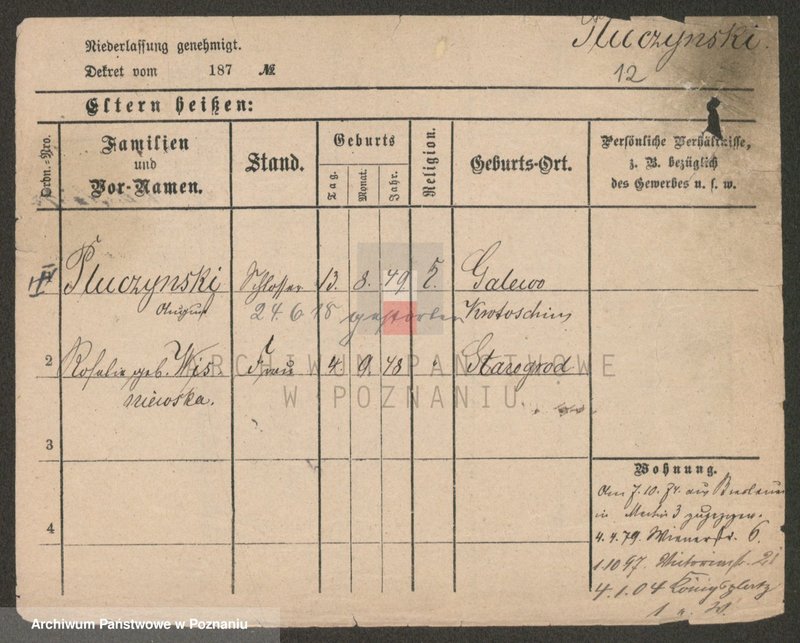 Niederlassung genehmigt.
Pluczynski.
Dekret vom 187 №
12
Eltern heißen:
Ordn.-Nro.
Familien und Vor-Namen.
Stand.
Geburts
Tag. Monat. Jahr.
Religion.
Geburts-Ort.
Persönliche Verhältnisse, z. B. bezüglich des Gewerbes u. s. w.
Pluczynski Schlosser 13. 8. 49 Galewo
August 24.6.18 gestorben Krotoschin
2 Rosalie geb. Wis- Frau 4. 9. 48 Starogrod
niewska.
ARCHIWUM PAŃSTWOWE
W POZNANIU
3
4
Wohnung.
Am 7.10.74 aus Breslau
in 3 zugezogen.
4.4.79. Wienerstr. 6.
1.10 97. Victoriastr. 21
4.1.04 Königsplatz
1
Archiwum Państwowe w Poznaniu